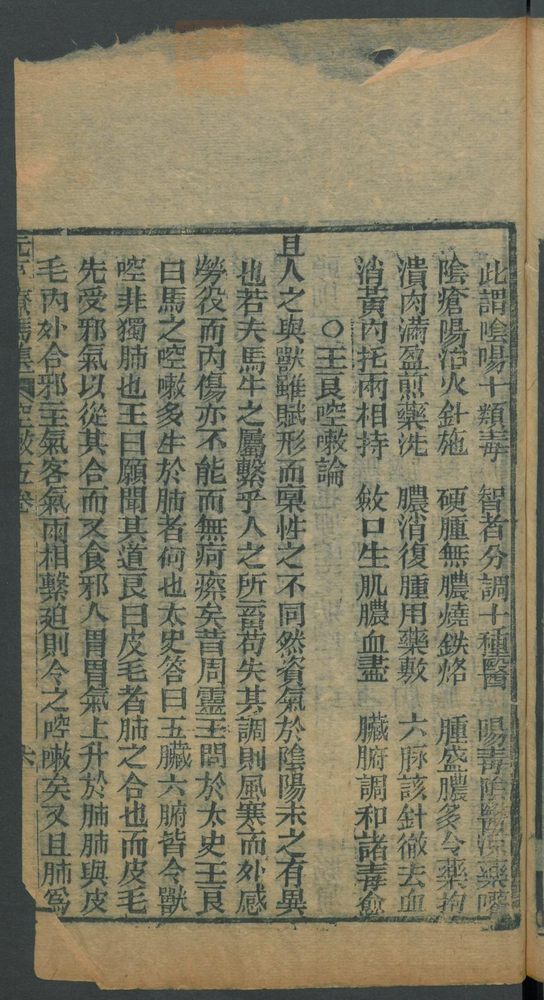 此謂陰陽十類毒　智者分調十種醫　陽毒陰瘡凉藥
陰瘡陽治火針施　硬腫無膿燒鉄烙　腫盛膿多令藥拘
潰肉滿盈煎藥洗　膿消復腫用藥敷　六脉該針徹去血
消黃內托兩相持　斂口生肌膿血盡　臟腑調和諸毒愈
○王良啌嗽論
且人之與獸雖賦形而禀性之不同然資氣於陰陽未之有異
也若夫馬牛之屬繫乎人之所畜苟失其調則風寒而外感
勞役而內傷亦不能而無疴瘵矣昔周靈王問於太史王良
曰馬之啌嗽多生於肺者何也太史答曰五臟六腑皆令獸
啌非獨肺也王曰願聞其道良曰皮毛者肺之合也而皮毛
先受邪氣以從其合而又食邪入胃胃氣上升於肺肺與皮
毛內外合邪主氣客氣兩相繫廹則令之啌嗽矣又且肺爲
元亨療馬集　啌嗽五卷　六